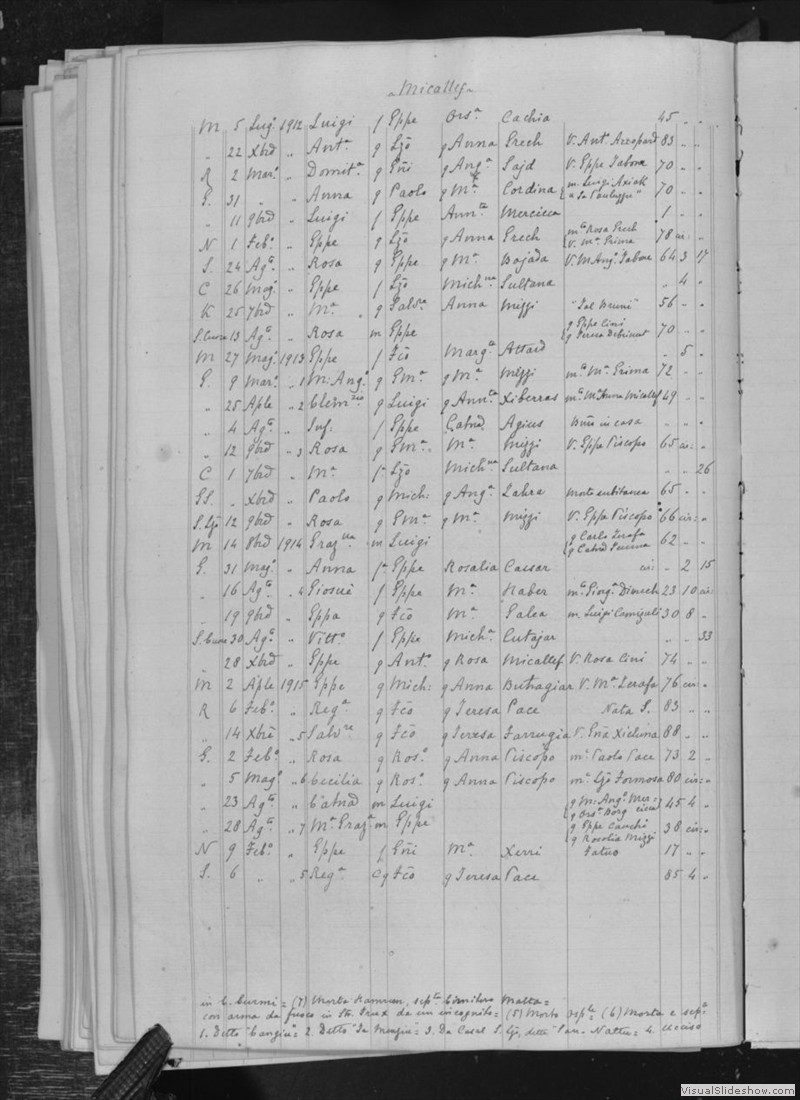 Micallef
M 5 Lugº 1912 Luigi f Eppe Orsª Cachia 45 " "
" 22 Xbrd " Antª g Ljõ g Anna Grech V. Antº Azzopardi 83 " "
R 2 Marº " Domitª g Gñi g Angª Sajd V. Eppe Tabona 70 " "
G. 31 " " Anna g Paolo g Mª Cordina m. Luigi Axiak 70 " "
" 11 9brd " Luigi f Eppe Annta Mercieca 1 " "
N 1 Febº " Eppe g Ljõ g Anna Grech mta Rosa Grech V. Mª Grima 78 cir= "
S. 24 Agto " Rosa g Eppe g Mª Bajada V. M. Angº Tabone 64 3 17
C 26 Magº " Eppe f Ljõ Michna Sultana " 4 "
K 25 7brd " Mª g Salvre Anna Mizzi 56 " "
S. Curvo 13 Agto " Rosa m Eppe g Eppe Cini 70 " "
M 27 Magº 1913 Eppe f Fcõ Margta Attard " 5 "
G. 9 Marº " 1 M. Angº g Gmª g Mª Mizzi mta Mª Grima 72 " "
" 25 Aple " 2 g Luigi g Annta Xiberras mta Mª Anna Micallef 49 " "
" 4 Agto " Inf. f Eppe Catnd Agius Bñti in casa " " "
" 12 9brd " 3 Rosa g Gmª Mª Mizzi V. Eppa Piscopo 65 cir= "
C 1 7brd " Mª f Ljõ Michna Sultana " " 26
GS " Xbrd " Paolo g Mich: g Angª Zahra morte subitanea 65 " "
S. Ljõ 12 9brd " Rosa g Gmª g Mª Mizzi V. Eppa Piscopo 66 cir= "
M 14 8brd 1914 Grazna m Luigi g Carlo Zerafa 62 " "
G. 31 Magº " Anna f Eppe Rosalia Caesar cir: " 2 15
" 16 Agto " 4 Giosuè f Eppe Mª Haber mto Giorgª Dimech 23 10 cir=
" 19 9brd " Eppa g Fcõ Mª Galea m. Luigi Camigali 30 8 "
S. Curvo 30 Agº " Vittº f Eppe Michª Cutajar " " 33
" 28 Xbrd " Eppe g Antº g Rosa Micallef V. Rosa Cini 74 " "
M 2 Aple 1915 Eppe g Mich: g Anna Buhagiar V. Mª Zerafa 76 cir= "
R 6 Febº " Regª g Fcõ g Teresa Pace Nata S. 83 " "
" 14 Xbre " 5 Salvre g Fcõ g Teresa Farrugia V. Gña Xiclina 88 " "
G. 2 Febº " Rosa g Rosº g Anna Piscopo mta Paolo Pace 73 2 "
" 5 Magº " 6 Cecilia g Rosº g Anna Piscopo mta Ljõ Formosa 80 cir= "
" 23 Agto " Catnd m Luigi g M. Angº Mer= g Orsª Borg cieca 45 4 "
" 28 Agto " 7 Mª Grazª m Eppe g Eppe Cauchi g Rosolia Mizzi 38 cir= "
N 9 Febº " Eppe f Gñi Mª Xerri Fatuo 17 " "
S. 6 " " 5 Regª C g Fcõ g Teresa Pace 85 4 "
in C. Curmi = (7) Morta Hamrun, septa Cimitero Malta=
con arma da fuoco in Sta. Cruz da un incognito= (5) Morto Osple= (6) Morta e septa
1. Detto "Cangiu"= 2. Detto "Ta Mangiu"= 3. Da Casal S. Ljõ, detta "Tan-Nattu"= 4. Ucciso